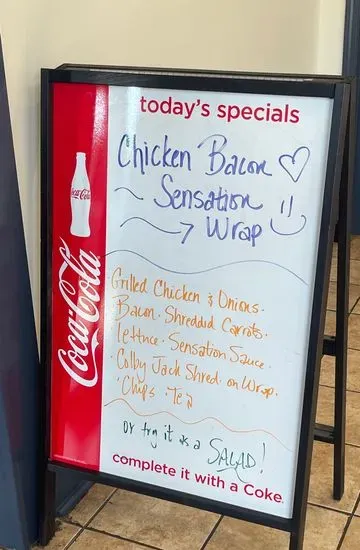 today's specials
Chicken Bacon
Sensation
Wrap
Grilled Chicken & Onions.
Bacon. Shredded Carrots.
lettuce. Sensation Sauce.
Colby Jack Shred. on Wrap.
Chips. Tea
or try it as a
SALAD!
complete it with a Coke.
Coca-Cola
Coca-Cola